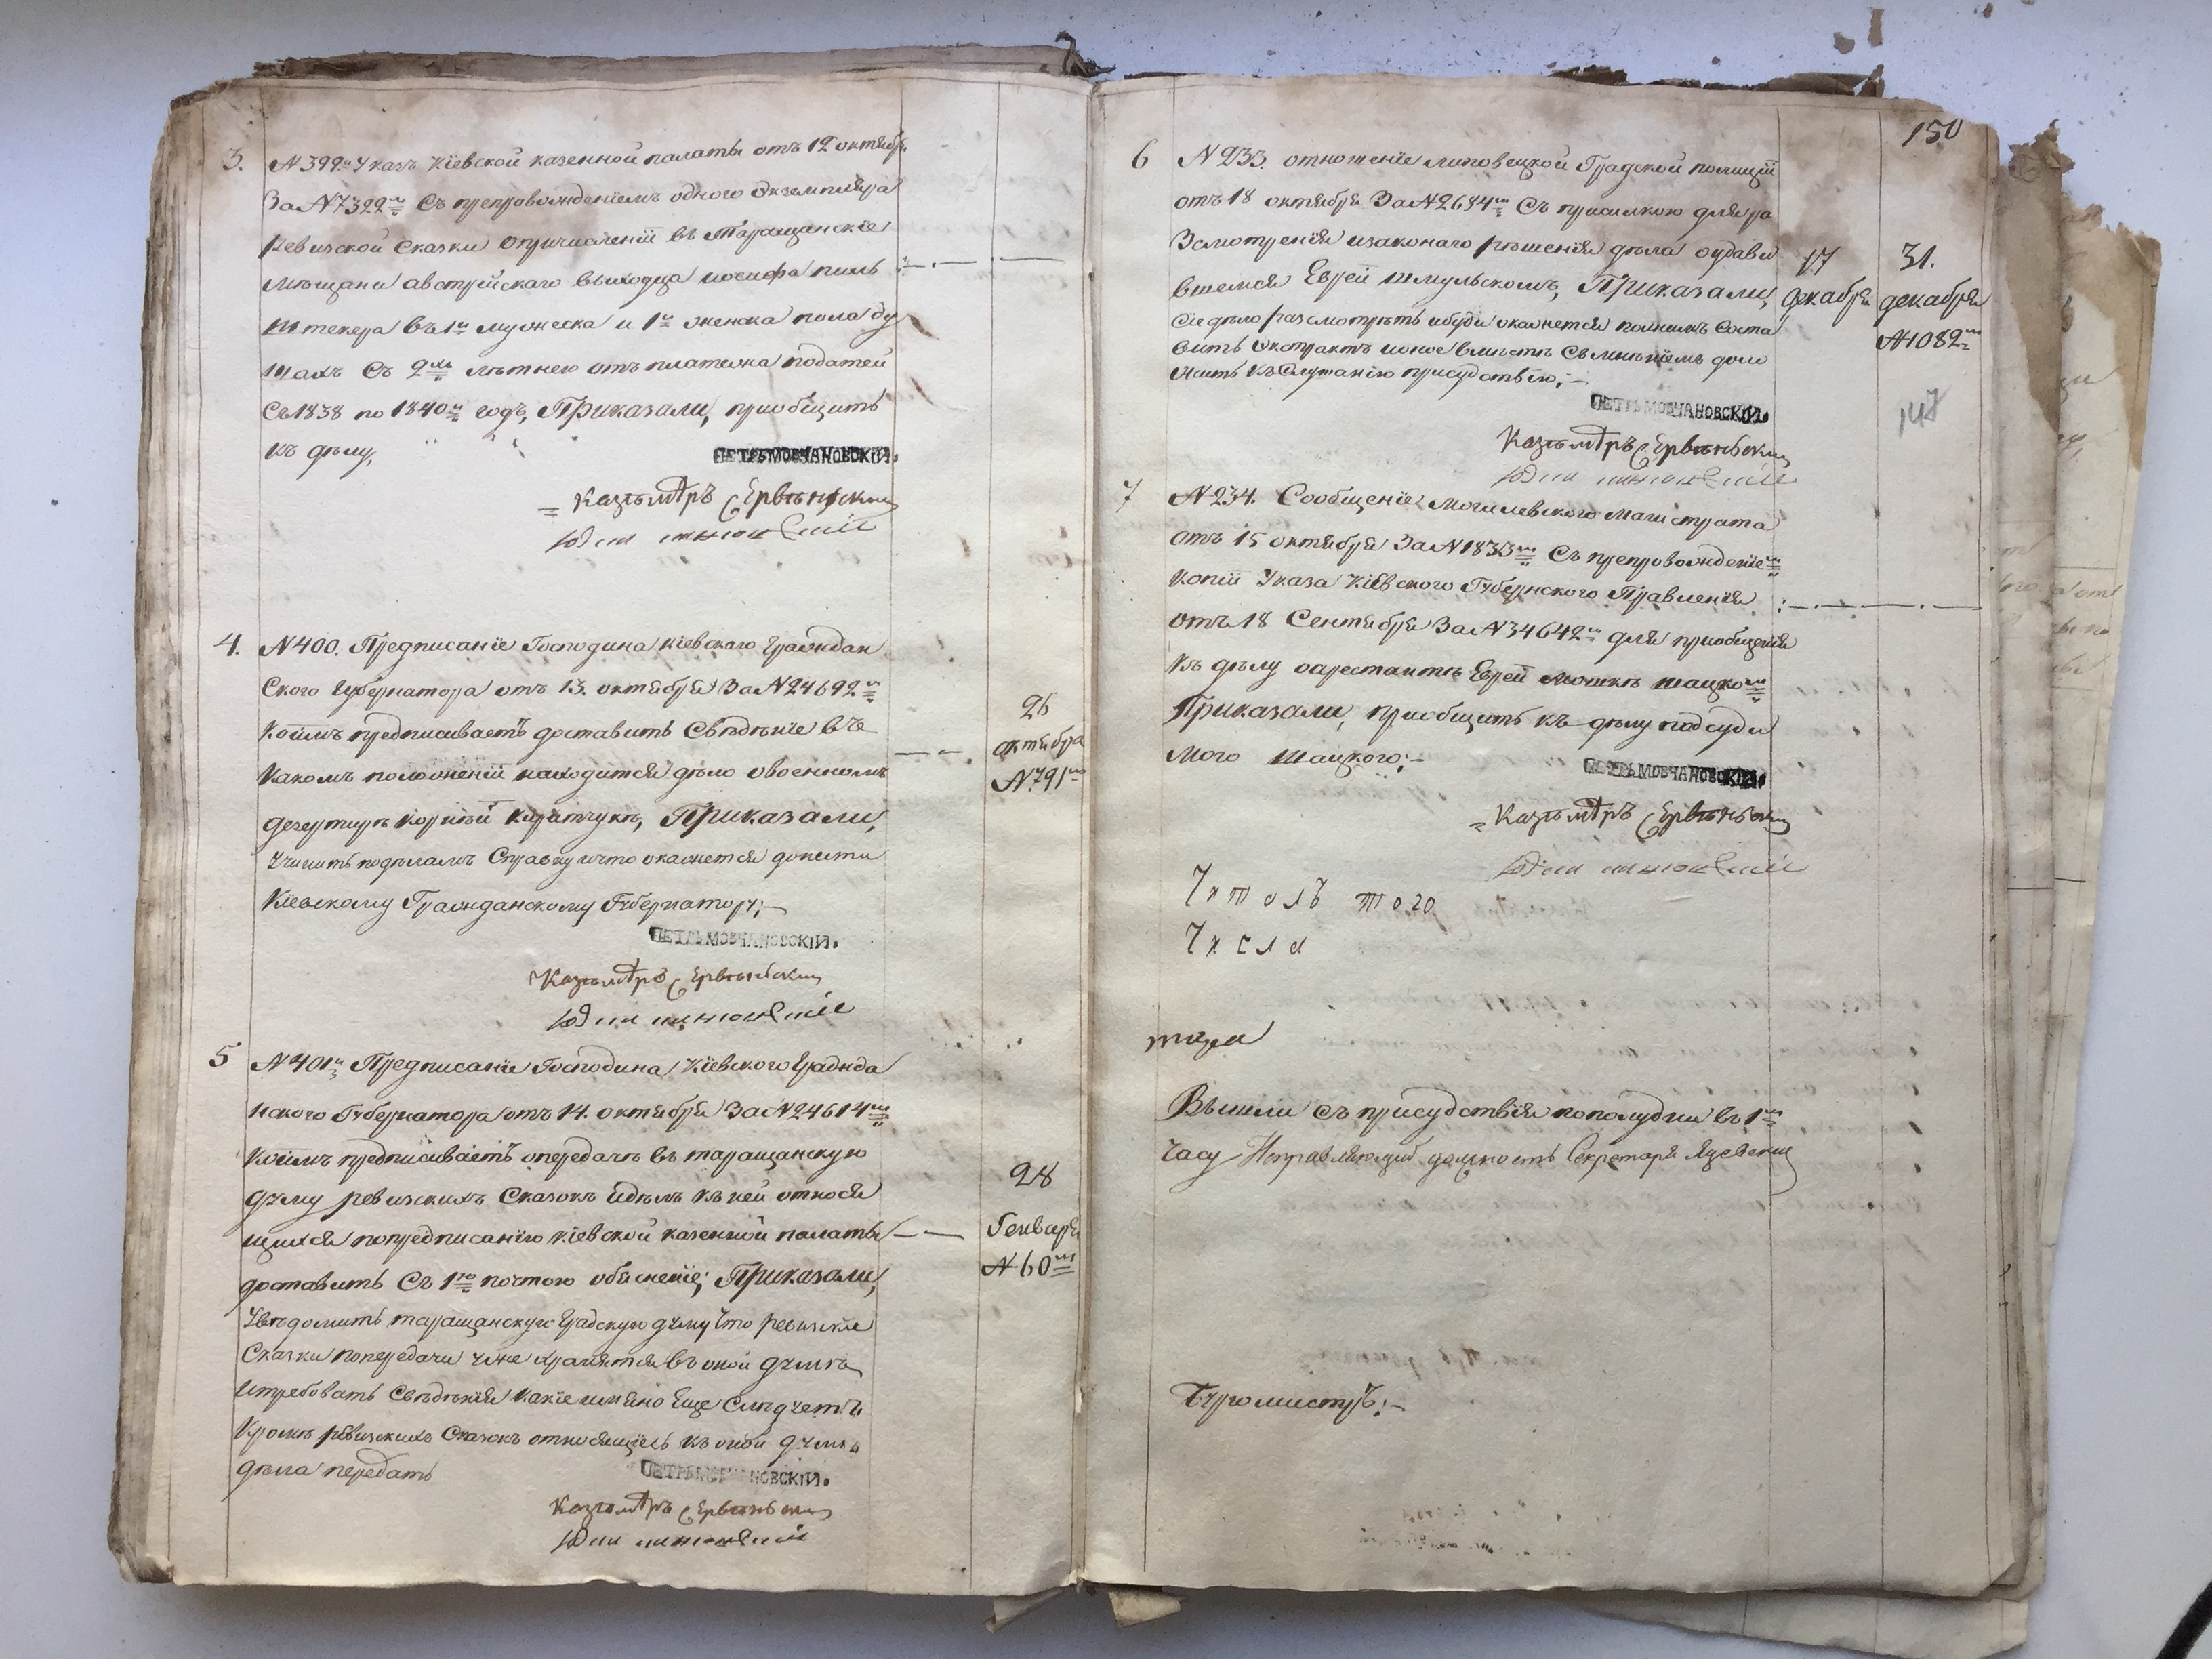 3. №399й Указъ Кіевской казенной палаты отъ 12 октября
За №7322м Съ препровожденіемъ одного экземпляра
Ревизской Сказки опричисленіи въ таращанскіе
мѣщани австрійскаго выходца иосифа пиль
штекера въ 1й мужеска и 1й женска пола ду
шахъ Съ 2хъ лѣтнею отъ платежа податей
Съ 1838 по 1840й годъ, Приказали, приобщить
къ дѣлу,
ПЕТРЪ МОВЧАНОВСКІЙ.
4. №400. Предписаніе Господина Кіевскаго Граждан
Ского Губернатора отъ 13. октября За №24692м
Коимъ предписываетъ доставить Свѣдѣніе въ
Какомъ положеніи находится дѣло овоенномъ
дезертирѣ Корнѣи, Приказали,
Учинить подѣламъ Справку ичто окажется донести
Кіевскому Гражданскому Губернатору;—
26
октября
№791мъ
ПЕТРЪ МОВЧАНОВСКІЙ.
5 №401й Предписаніе Господина Кіевского Гражда
нского Губернатора отъ 14. октября За №24614мъ
Коимъ предписываетъ опередачѣ въ таращанскую
думу ревизскихъ Сказокъ идѣлъ къ ней относя
щихся попредписанію кіевской казенной палаты
доставить Съ 1ю почтою обясненіе; Приказали,
Увѣдомить таращанскую Градскую думу что ревизскіе
Сказки попередачи уже хранятся въ оной думѣ
Истребовать Свѣдѣнія какіе имяно Еще Слѣдуетъ
Кромѣ ревизскихъ Сказокъ относящіесь къ оной думѣ
дѣла передать
28
Генваря
№60мъ
ПЕТРЪ МОВЧАНОВСКІЙ.
150
6 №233. отношеніе липовецкой Градской полиціи
отъ 18 октября За №2684мъ Съ присилкою для ра
Зсмотренія изаконаго рѣшенія дѣла оудави
вшемся Евреи шмульскомъ, Приказали,
Сіе дѣло разсмотрѣть ибуди окажется полнимъ Соста
вить Экстрактъ ионое вмѣстѣ Съ мнѣніемъ доло
жить къ Слушанію присудствію;—
17
декабря
31.
декабря
№1082мъ
147
ПЕТРЪ МОВЧАНОВСКІЙ.
7 №234. Сообщеніе могилевского магистрата
отъ 15 октября За №1833мъ Съ препровожденіемъ
Копіи Указа Кіевского Губернского Правленія
отъ 18 Сентября За №34642й для приобщенія
Къ дѣлу оарестантѣ Евреи мошкѣ шацкомъ
Приказали, приобщить къ дѣлу подсуди
мого шацкого;—
ПЕТРЪ МОВЧАНОВСКІЙ.
того
Числа
Вышли съ присудствія пополудни въ 1мъ
часу Исправляющій должность Секретаря
Бургомистръ;—